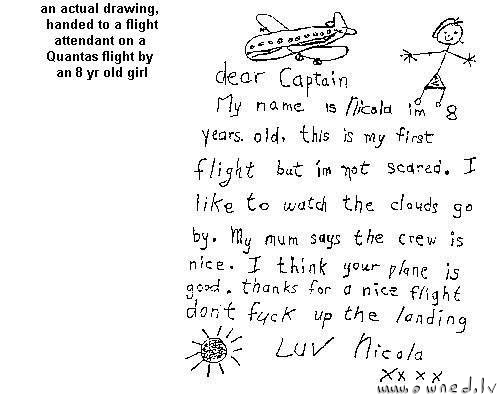 an actual drawing,
handed to a flight
attendant on a
Quantas flight by
an 8 yr old girl
dear Captain
My name is Nicola im 8
years. old, this is my first
flight but im not scared. I
like to watch the clouds go
by. My mum says the crew is
nice. I think your plane is
good. thanks for a nice flight
don't fuck up the landing
LUV Nicola
XxXx
www.owned.lv